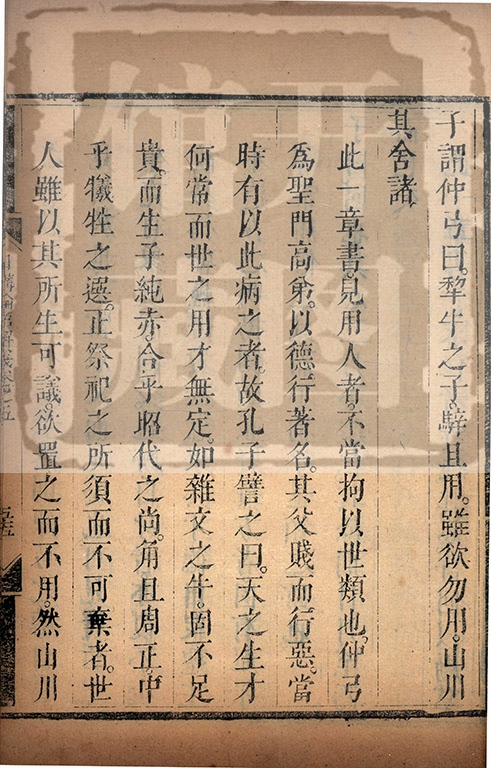 子謂仲弓曰。犂牛之子。騂且角。雖欲勿用。山川
其舍諸
此一章書。見用人者。不當拘以世類也。仲弓
爲聖門高弟。以德行著名。其父賤而行惡。當
時有以此病之者。故孔子譬之曰。天之生才
何常。而世之用才無定。如雜文之牛。固不足
貴。而生子純赤。合乎昭代之尚。角且周正。中
乎犧牲之選。正祭祀之所須。而不可棄者。世
人雖以其所生可議。欲置之而不用。然山川
五